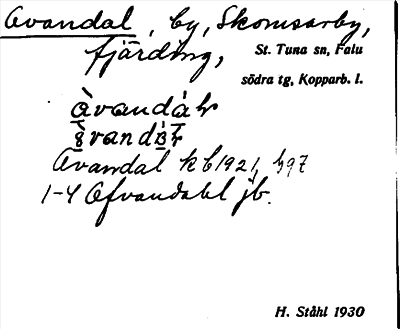 Avandal, by, Skomsarby,
fjärding, St. Tuna sn, Falu
södra tg, Kopparb. l.
Avandal kb 1921, h97
1-4 Afvandahl jb.
H. Ståhl 1930